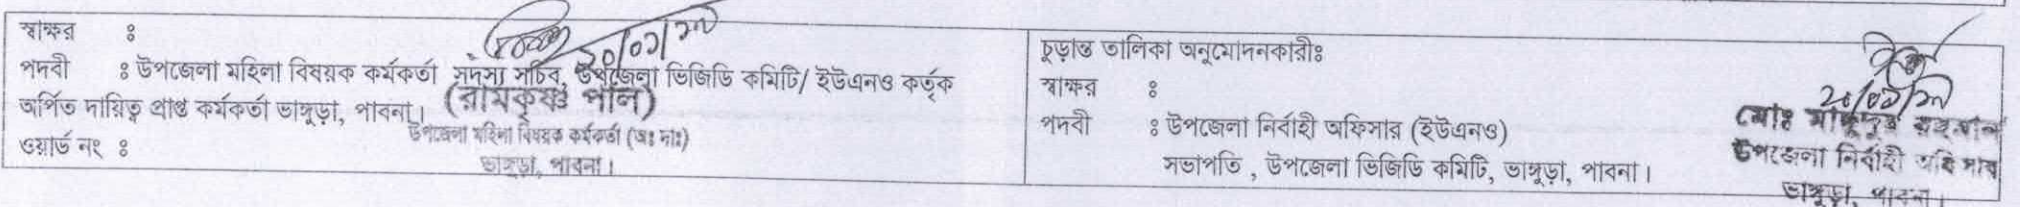 স্বাক্ষর ঃ
পদবী ঃ উপজেলা মহিলা বিষয়ক কর্মকর্তা সদস্য সচিব, উপজেলা ভিজিডি কমিটি/ ইউএনও কর্তৃক
অর্পিত দায়িত্ব প্রাপ্ত কর্মকর্তা ভাঙ্গুড়া, পাবনা।
(রামকৃষ্ণ পাল)
উপজেলা মহিলা বিষয়ক কর্মকর্তা (অঃ দাঃ)
ভাঙ্গুড়া, পাবনা।
ওয়ার্ড নং ঃ
চুড়ান্ত তালিকা অনুমোদনকারীঃ
স্বাক্ষর ঃ
পদবী ঃ উপজেলা নির্বাহী অফিসার (ইউএনও)
সভাপতি , উপজেলা ভিজিডি কমিটি, ভাঙ্গুড়া, পাবনা।
মোঃ
উপজেলা নির্বাহী অফিসার
ভাঙ্গুড়া, পাবনা।